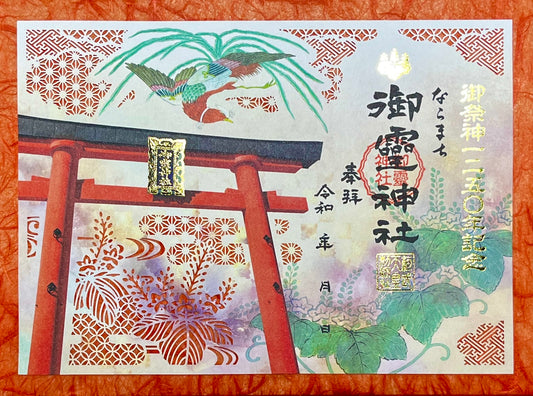 御祭神一二五〇年記念
ならまち
御靈神社
奉拝
令和　年　月　日